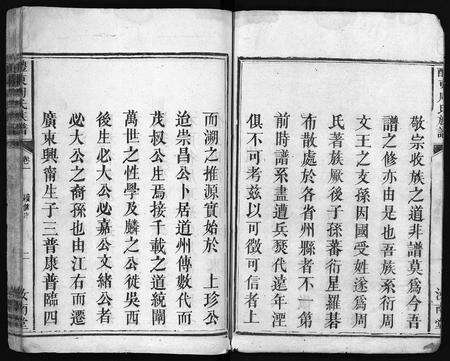 敬宗收族之道非譜莫為今吾
譜之修亦由是也吾族系衍周
文王之支孫因國受姓遂為周
氏著族厥後子孫蕃衍星羅碁
布散處於各省州縣者不一第
前時譜系盡遭兵燹代遠年湮
俱不可考茲以可徵可信者上
而溯之推源實始於 上珍公
迨崇昌公卜居道州傳數代而
茂叔公生焉接千載之道統闡
萬世之性學及麟之公徙吳西
後生必大公必嘉公文緒公者
必大公之裔孫也由江右而遷
廣東興甯生子三普康普臨四
醴東周氏族譜
卷一
二
汝南堂